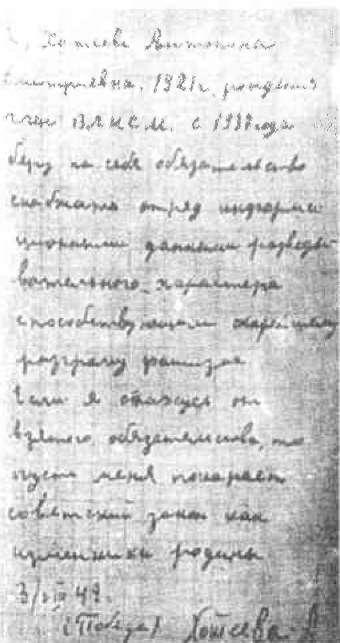 Я, Хотеева Антонина
Дмитриевна, 1921г. рождения
член ВЛКСМ. с 1938 года
беру на себя обязательство
снабжать отряд информа
ционными данными разведы
вательного характера
способствующими скорейшему
разгрому фашизма
Если я откажусь от
взятого обязательства, то
пусть меня покарает
советский закон как
изменника родины
3/ 42.
(Победа) Хотеева А